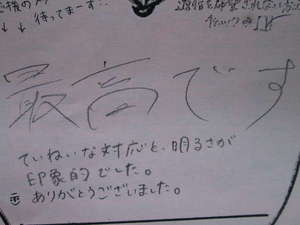 ↓ ↓ 待ってまーす!!
最高です
ていねいな対応と、明るさが
印象的でした。
ありがとうございました。